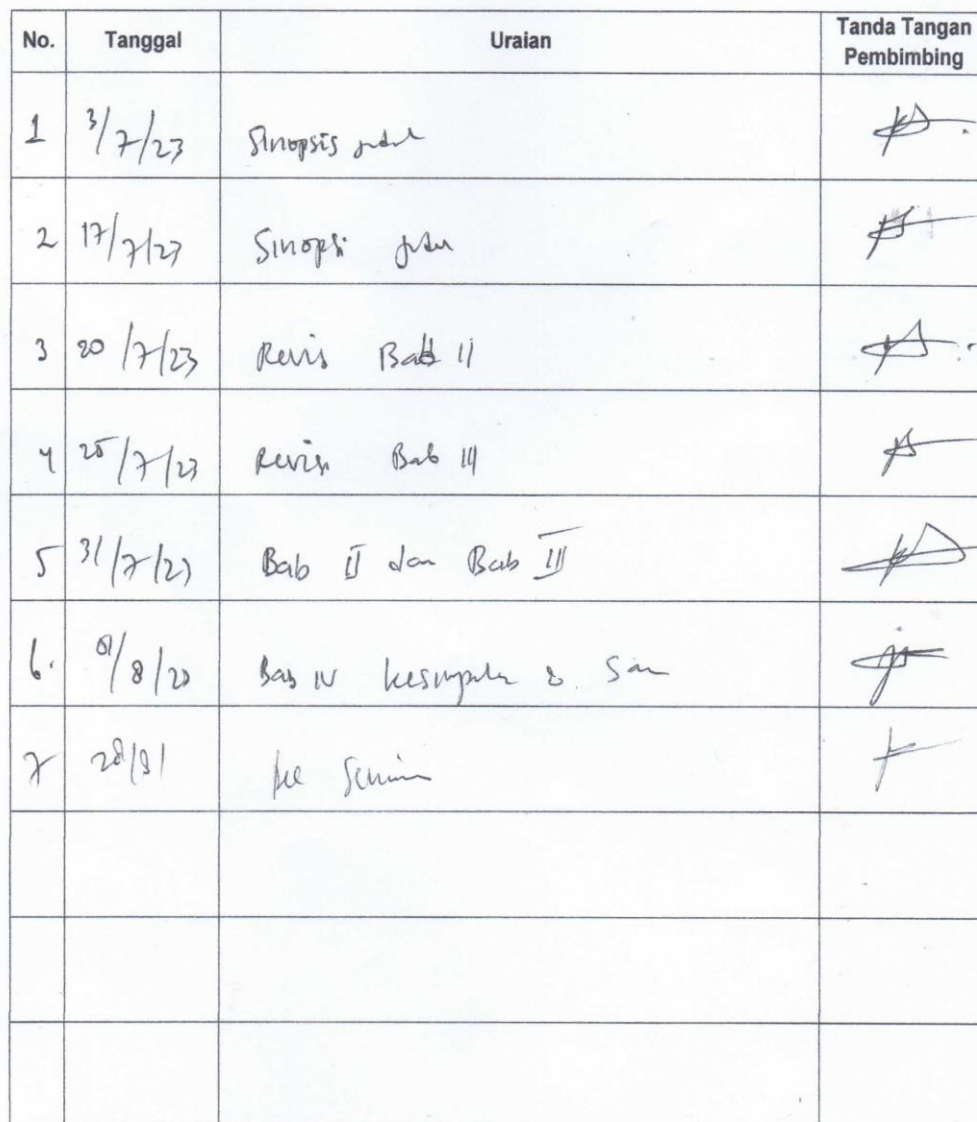 No. Tanggal Uraian Tanda Tangan Pembimbing
1 3/7/23 Sinopsis judul
2 17/7/23 Sinopsi judu
3 20/7/23 Revis Bab II
4 25/7/23 Revisi Bab III
5 31/7/23 Bab II dan Bab III
6. /8/23 Bab IV kesimpula & Sar
7 28/8 ke